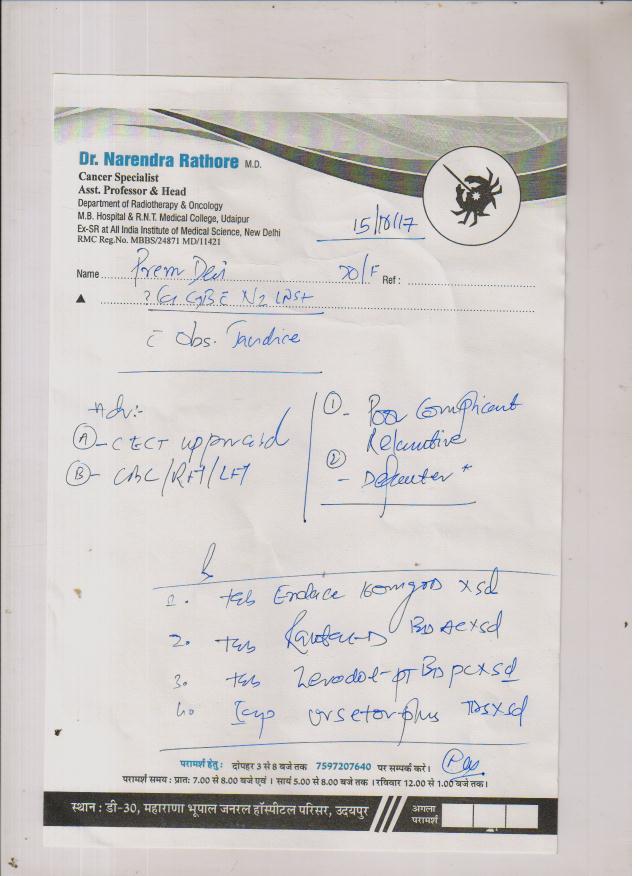 Dr. Narendra Rathore M.D.
Cancer Specialist
Asst. Professor & Head
Department of Radiotherapy & Oncology
M.B. Hospital & R.N.T. Medical College, Udaipur
Ex-SR at All India Institute of Medical Science, New Delhi
RMC Reg.No. MBBS/24871 MD/11421
Name Prem Devi 70/F Ref :
Obs. Jaundice
Adv:-
(A) - CECT upper abd
(B) - CBC/RFT/LFT
(1) - Poor
(2) - Defaulter *
1. Tab x5d
2. Tab BD AC x5d
3. Tab Zerodol-PT BD PC x5d
4. Cap TDS x5d
परामर्श हेतु : दोपहर 3 से 8 बजे तक 7597207640 पर सम्पर्क करे।
परामर्श समय : प्रातः 7.00 से 8.00 बजे एवं । सायं 5.00 से 8.00 बजे तक । रविवार 12.00 से 1.00 बजे तक।
स्थान : डी-30, महाराणा भूपाल जनरल हॉस्पीटल परिसर, उदयपुर
अगला
परामर्श